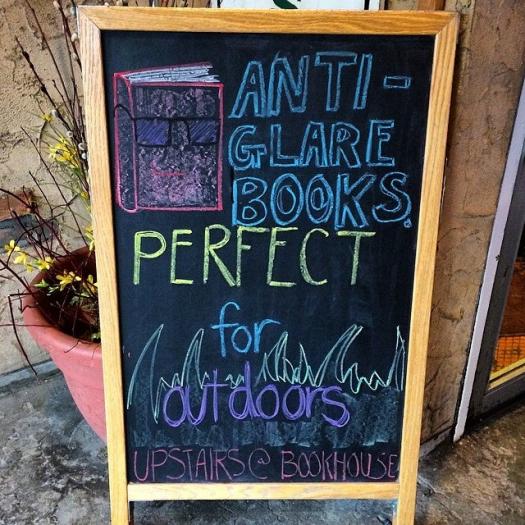 ANTI-
GLARE
BOOKS.
PERFECT
for
outdoors
UPSTAIRS @ BOOKHOUSE